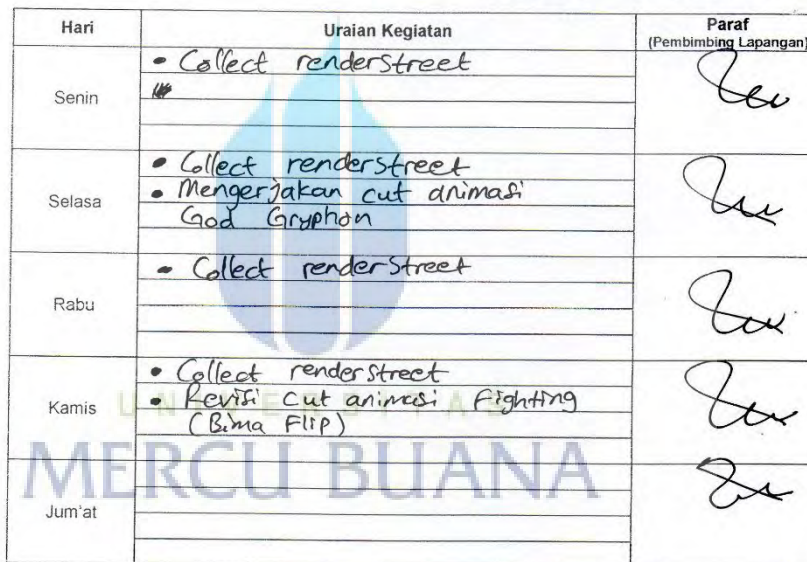 Hari Uraian Kegiatan Paraf
(Pembimbing Lapangan)
Senin
• Collect renderstreet
Selasa
• Collect renderstreet
• Mengerjakan cut animasi
God Gryphon
Rabu
• Collect renderstreet
Kamis
• Collect renderstreet
• Revisi cut animasi Fighting
(Bima Flip)
UNIVERSITAS
MERCU BUANA
Jum'at